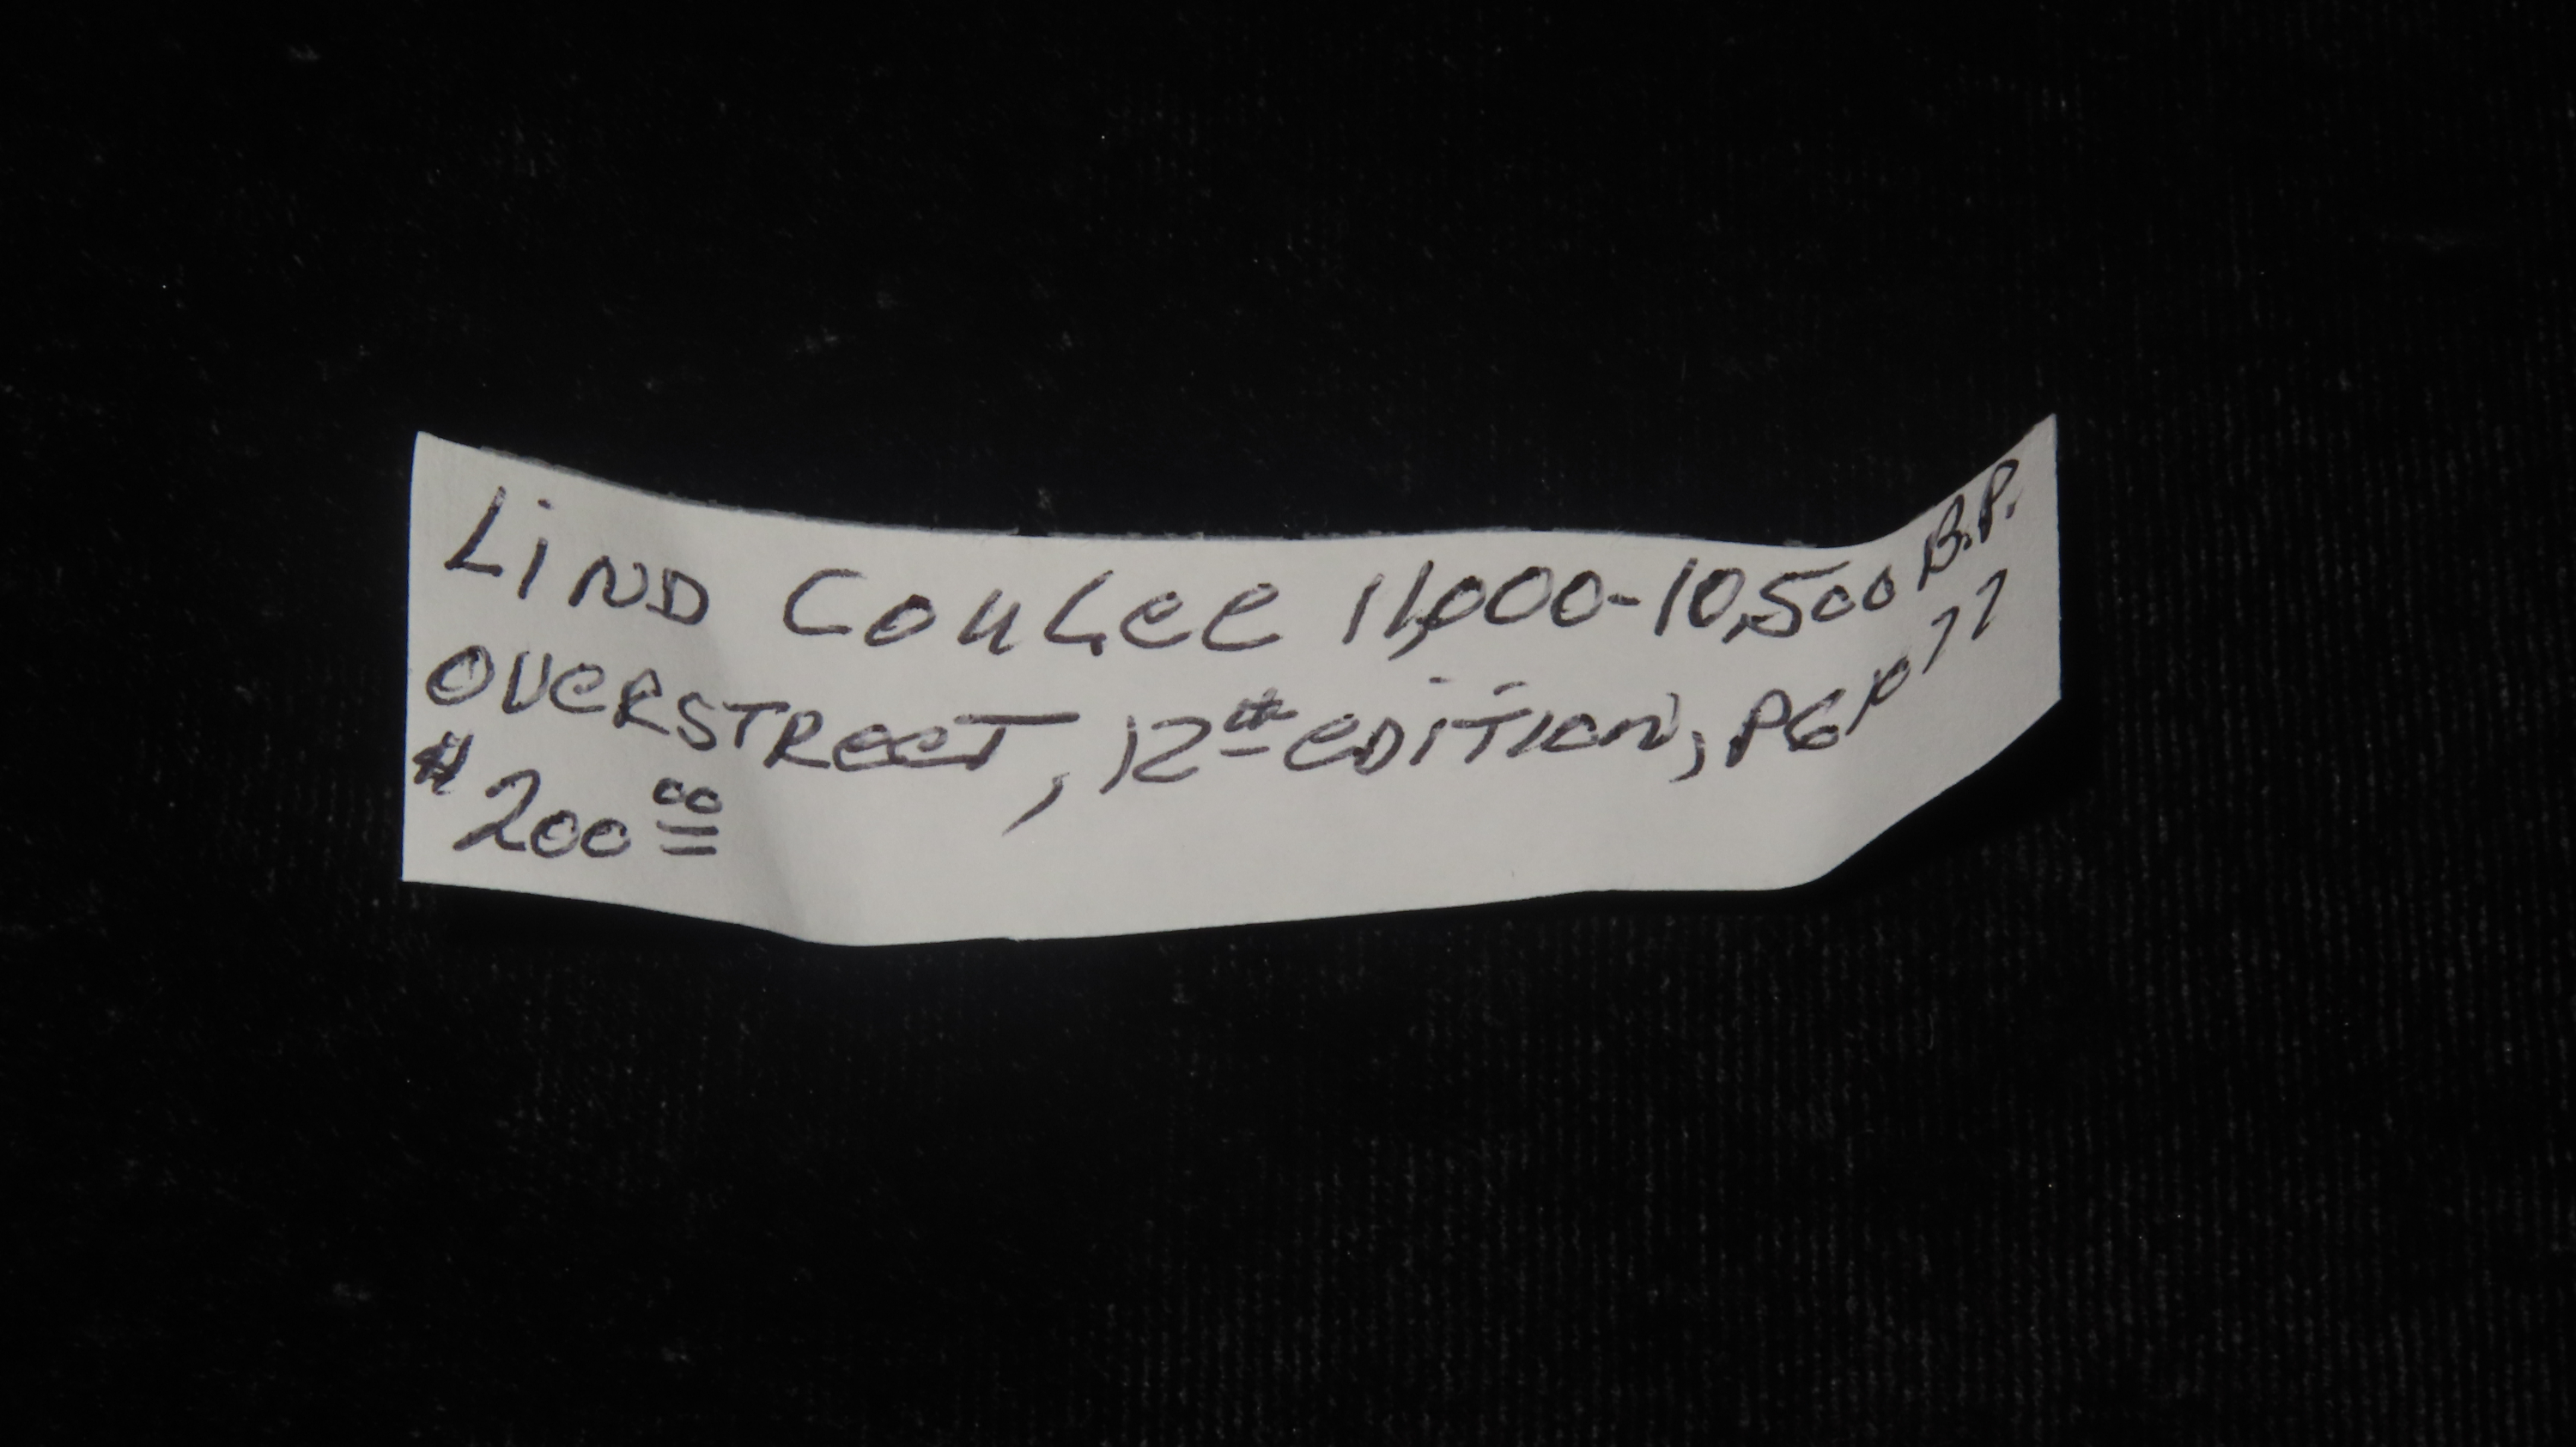 LIND COULEE 11,000-10,500 B.P.
OVERSTREET, 12th EDITION, PG 1077
$200.00